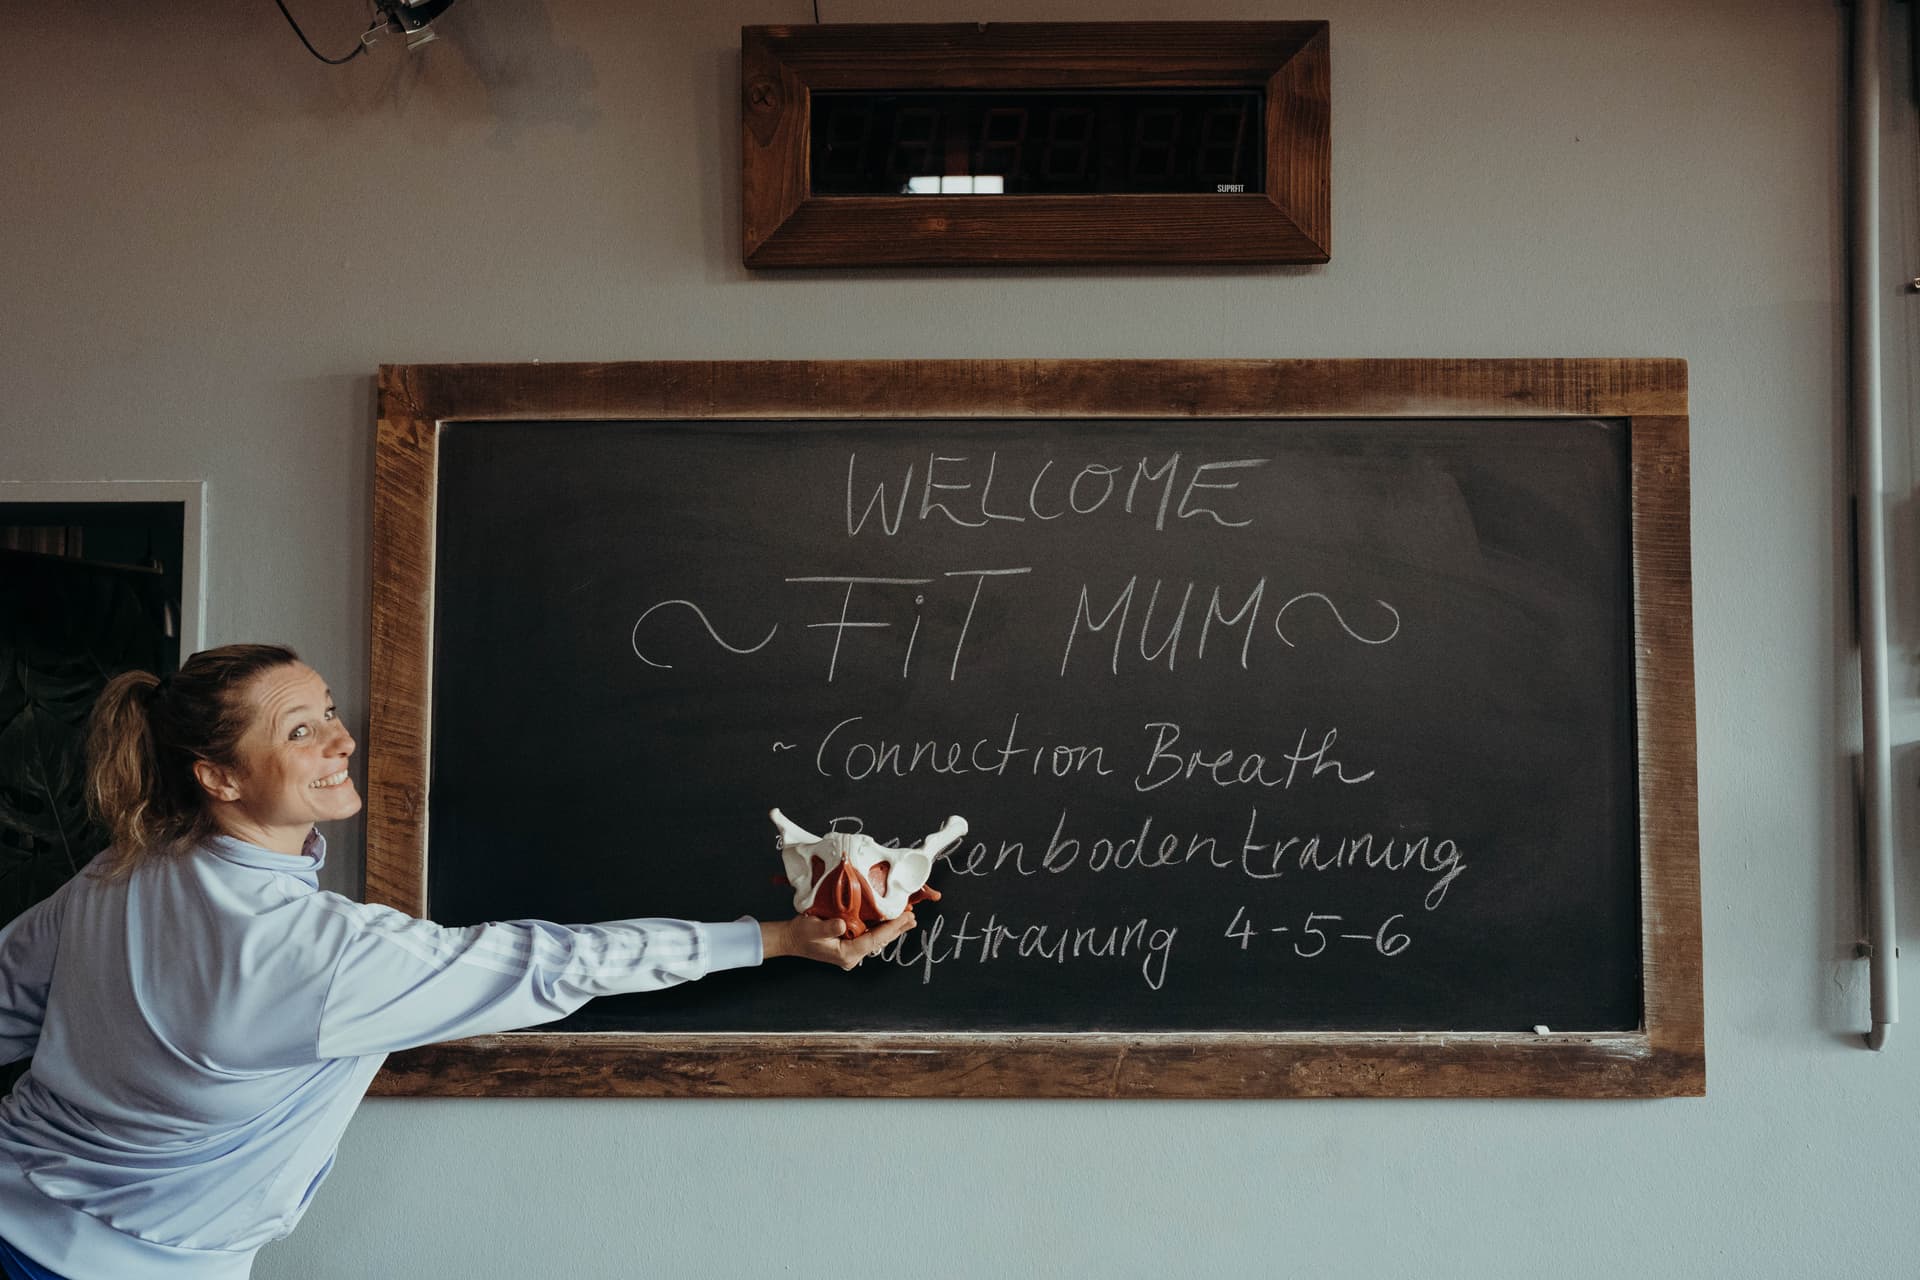 SUPRFIT
WELCOME
~ FiT MUM ~
~ Connection Breath
~ Beckenbodentraining
Krafttraining 4-5-6